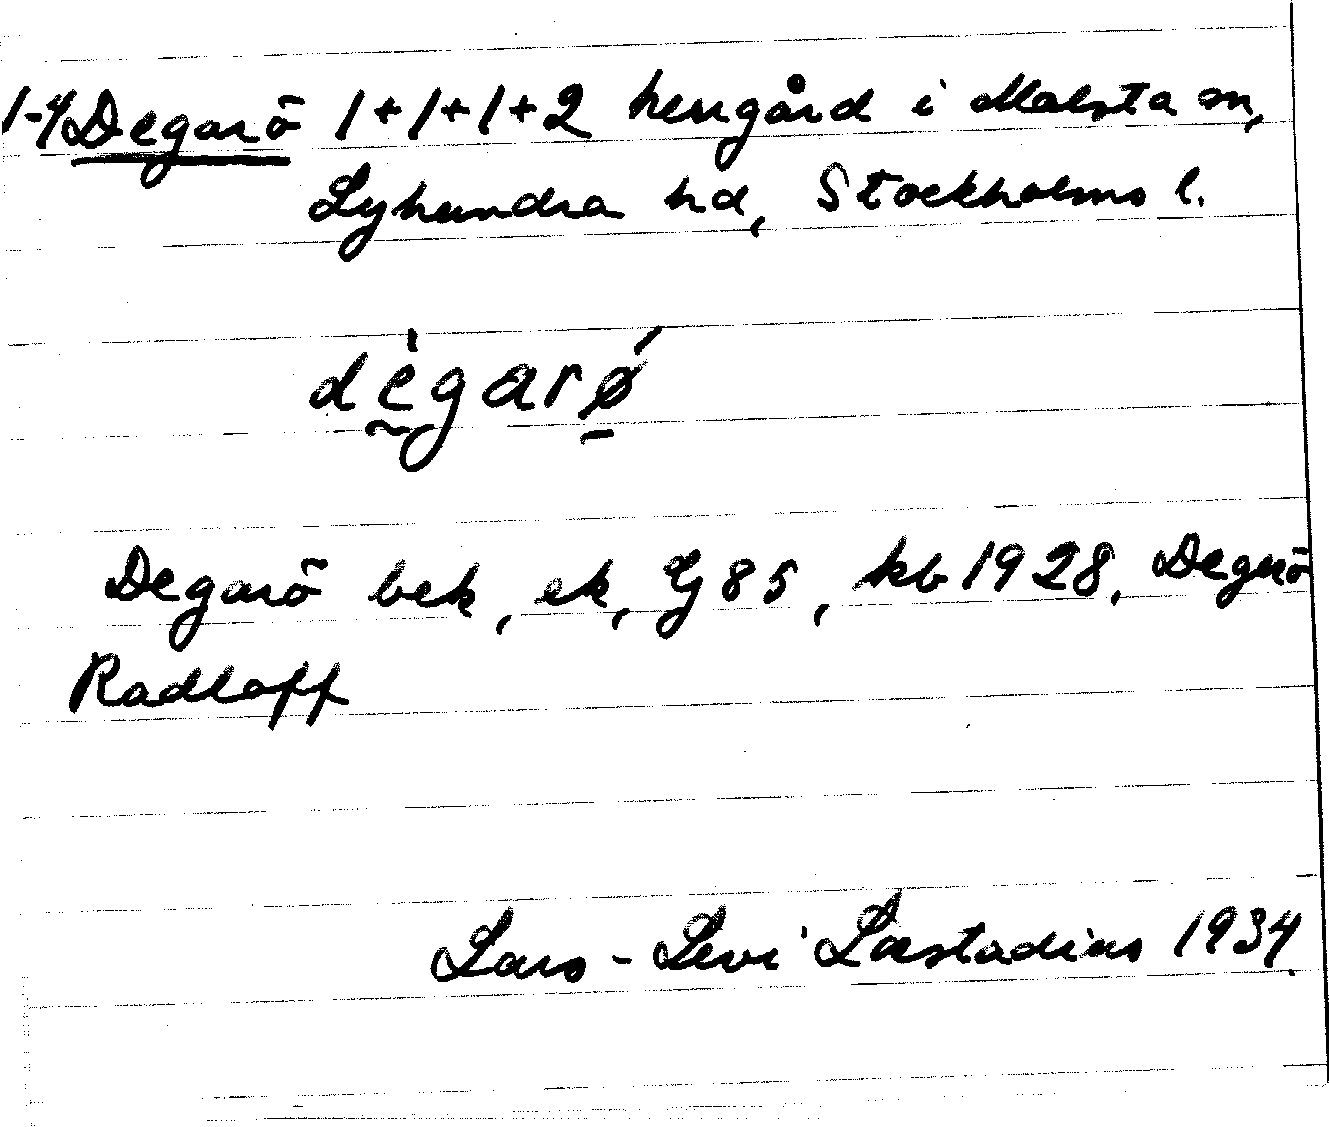 1-4 Degarö 1+1+1+2 herrgård i Malsta sn,
Lyhundra hd, Stockholms l.
dègarǿ
Degarö bek, ek, Gj 85, kb 1928, Degerö
Radloff
Lars-Levi Læstadius 1934